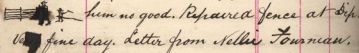 him no good. Repaired fence at Dip
fine day. Letter from Nellie Fourneau.